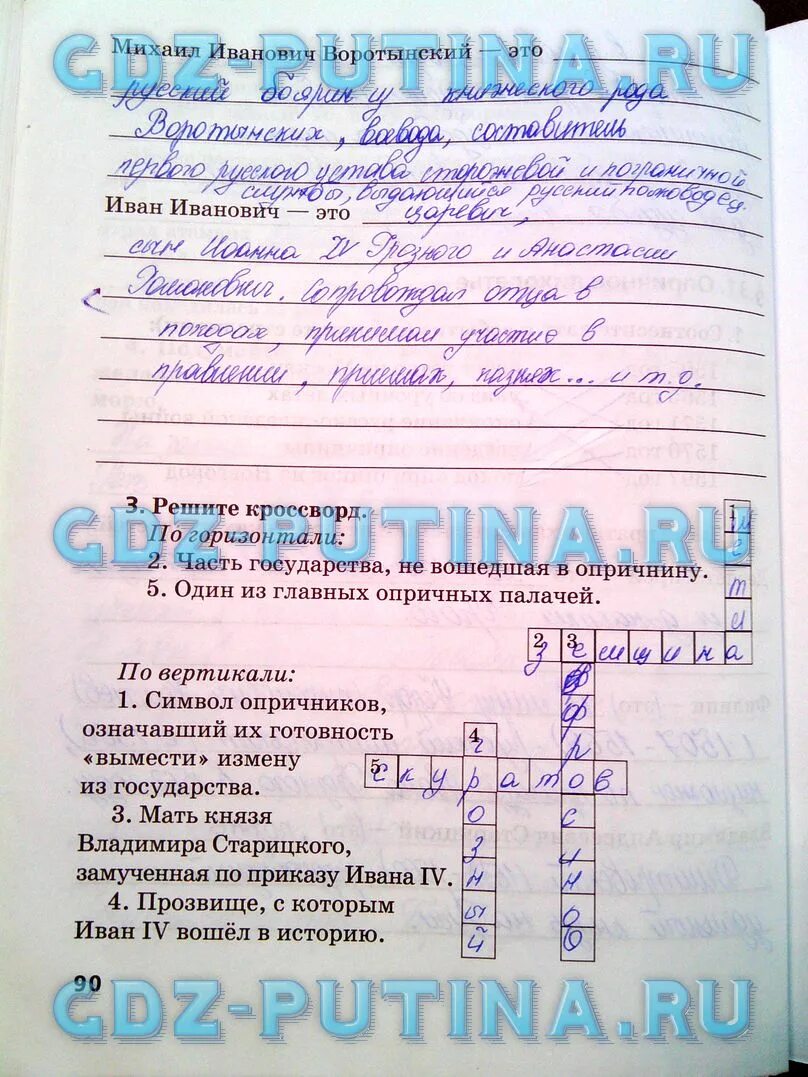 Михаил Иванович Воротынский — это
русский боярин из княжеского рода
Воротынских, воевода, составитель
первого русского устава сторожевой и пограничной
службы, выдающийся русский полководец.
Иван Иванович — это царевич,
сын Иоанна IV Грозного и Анастасии
сопровождал отца в
походах, принимал участие в
правлении, приемах, казнях... и т.д.
3. Решите кроссворд.
По горизонтали:
2. Часть государства, не вошедшая в опричнину.
5. Один из главных опричных палачей.
По вертикали:
1. Символ опричников,
означавший их готовность
«вымести» измену
из государства.
3. Мать князя
Владимира Старицкого,
замученная по приказу Ивана IV.
4. Прозвище, с которым
Иван IV вошёл в историю.
1 метла
2 3 земщина
4 грозный
5 скуратов
90
GDZ-PUTINA.RU
GDZ-PUTINA.RU
GDZ-PUTINA.RU
GDZ-PUTINA.RU
GDZ-PUTINA.RU